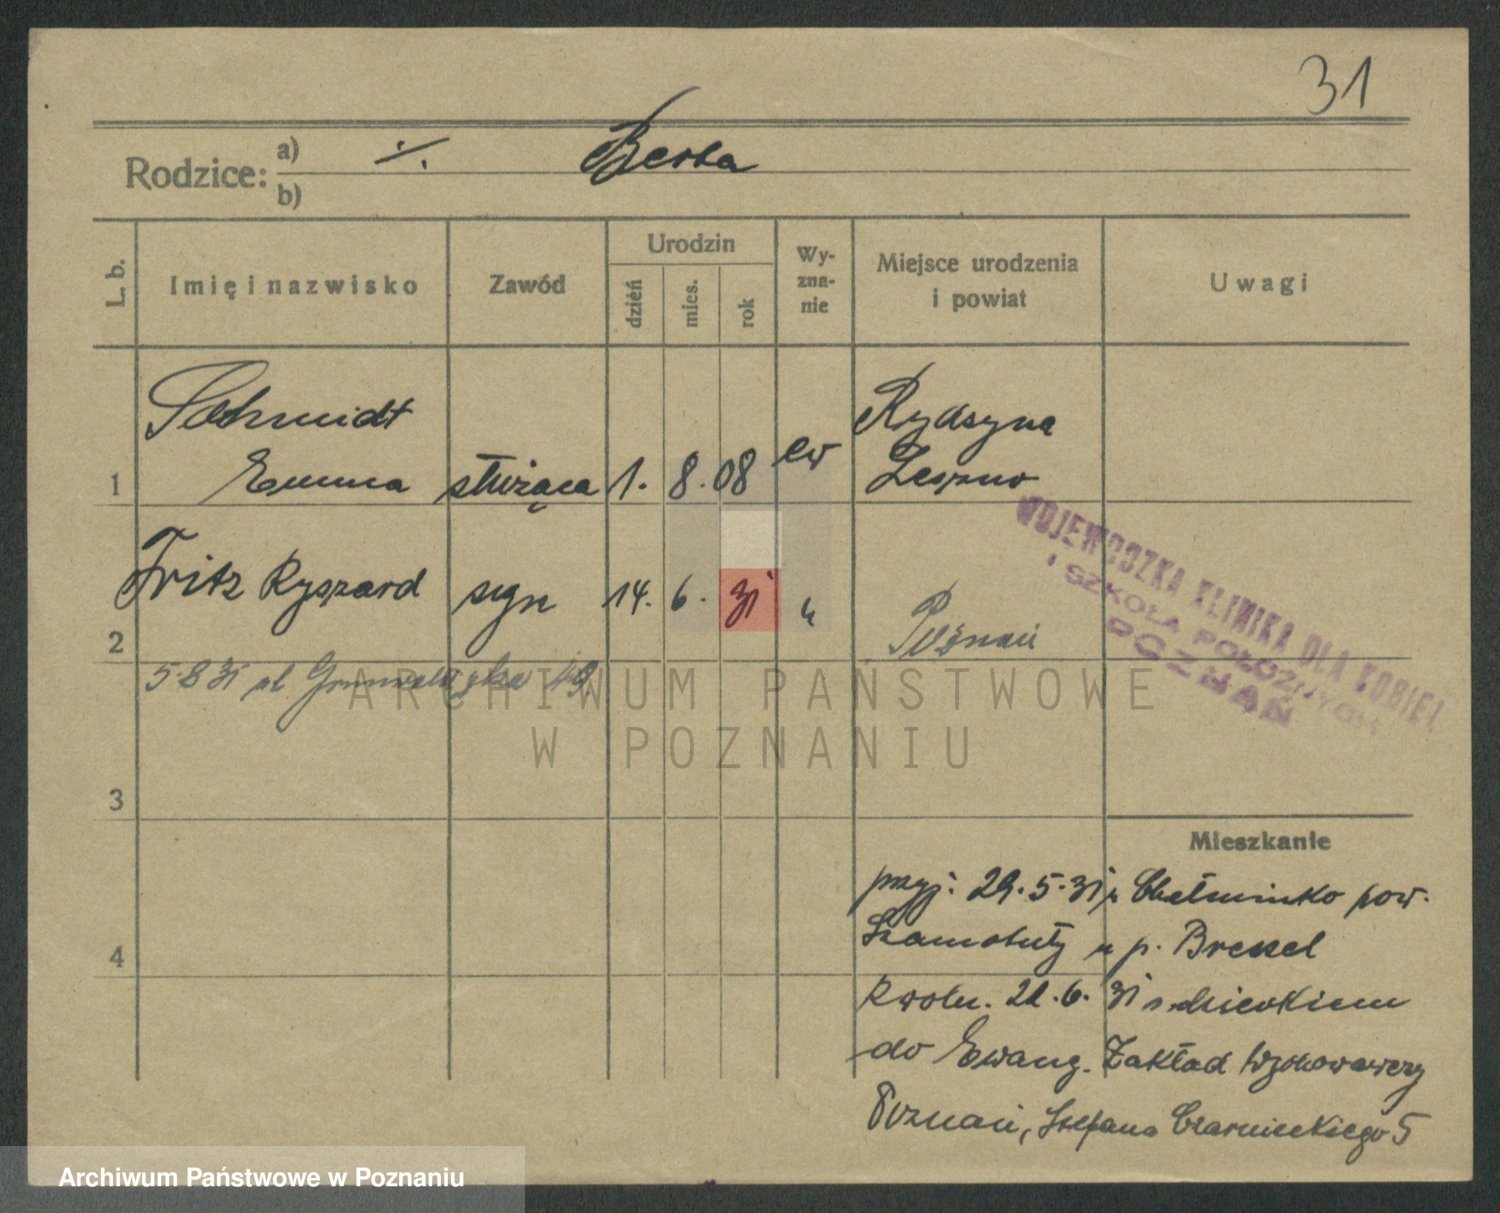 31
Rodzice: a) ./. Berta
b)
L. b. Imię i nazwisko Zawód Urodzin dzień mies. rok Wy-zna-nie Miejsce urodzenia i powiat Uwagi
Schmidt Rydzyna
1 Emma służąca 1. 8. 08 ew Leszno
2 Fritz Ryszard syn 14. 6. 31 " Poznań
WOJEWÓDZKA KLINIKA DLA KOBIET
I SZKOŁA POŁOŻNYCH
POZNAŃ
5 8 31 ul Grunwaldzka
ARCHIWUM PAŃSTWOWE
W POZNANIU
3
Mieszkanie
przyj: 29.5.31 z Chełminko pow.
4 Szamotuły u p. Brezel
zwoln. 22.6.31 z dzieckiem
do Ewang. Zakład Wychowawczy
Poznań, Stefana Czarnieckiego 5
Archiwum Państwowe w Poznaniu